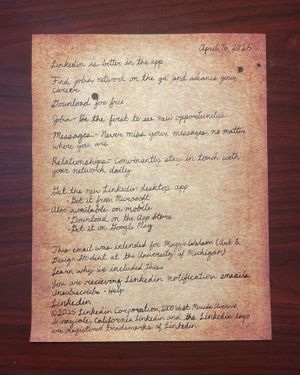 April 7, 2025
Linkedin is better in the app
Find jobs, network on the go, and advance your
career
Download for free
Jobs- Be the first to see new opportunities
Messages- Never miss your messages, no matter
where you are
Relationships- Conviniently stay in touch with
your network daily
Get the new Linkedin desktop app
• Get it from Microsoft
Also available on mobile
• Download on the App Store
• Get it on Google Play
This email was intended for Maggie (Art &
Design Student at the University of Michigan)
Learn why we included this.
You are recieving Linkedin notification emails
Unsubscribe • Help
Linkedin
©2025 Linkedin Corporation, 1000 West Maude Avenue
Sunnyvale, California Linkedin and the Linkedin logo
are registered trademarks of Linkedin.